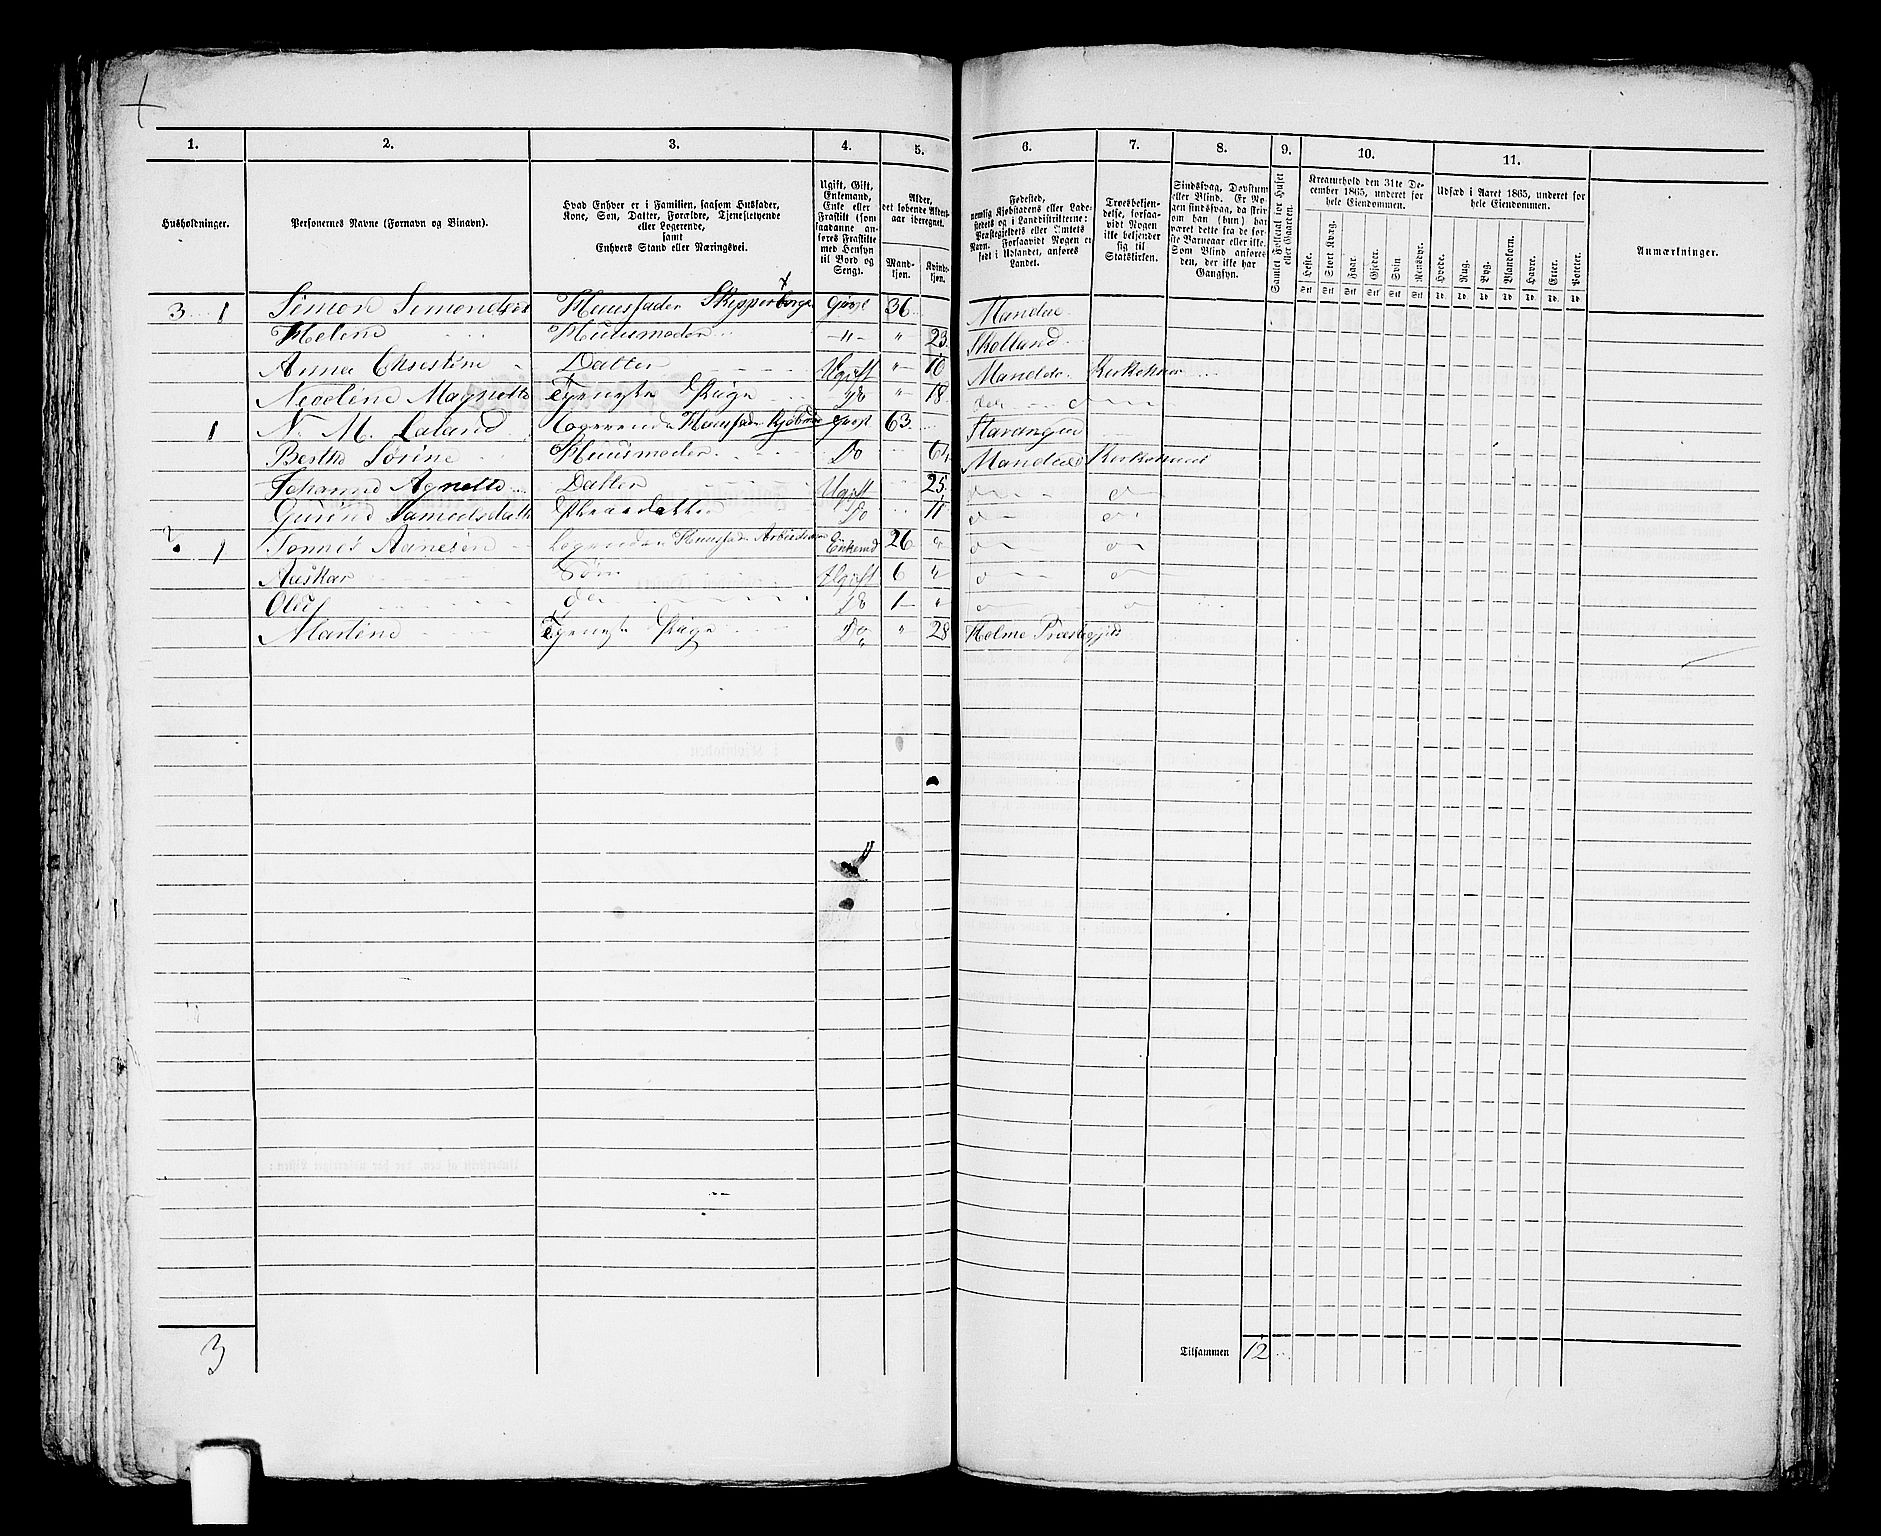 1. 2. 3. 4. 5. 6. 7. 8. 9. 10. 11.
Husholdninger.
Personernes Navne (Fornavn og Binavn).
Hvad Enhver er i Familien, saasom Husfader,
Kone, Søn, Datter, Forældre, Tjenestetyende
eller Logerende,
samt
Enhvers Stand eller Næringsvei.
Ugift, Gift,
Enkemand,
Enke eller
Fraskilt (som
saadanne an-
føres Fraskilte
med Hensyn
til Bord og
Seng).
Alder,
det løbende Alders-
aar iberegnet.
Mand-
kjøn.
Kvinde-
kjøn.
Fødested,
nemlig Kjøbstadens eller Lade-
stedets og i Landdistrikterne:
Præstegjeldets eller Amtets
Navn. Forsaavidt Nogen er
født i Udlandet, anføres
Landet.
Troesbekjen-
delse, forsaa-
vidt Nogen
ikke bekjender
sig til
Statskirken.
Sindssvag, Døvstum
eller Blind. Er No-
gen sindssvag, da skri-
ves om han (hun) har
været dette fra de før-
ste Barneaar eller ikke.
Som Blind anføres
den, der ikke har
Gangsyn.
Samlet Folketal for Huset
eller Gaarden.
Kreaturhold den 31te De-
cember 1865, underet for
hele Eiendommen.
Heste. Stort Kvæg. Faar. Gjeder. Svin Rensdyr.
Udsæd i Aaret 1865, underet for
hele Eiendommen.
Hvede. Rug. Byg. Blandkorn. Havre. Erter. Poteter.
Anmærkninger.
3 1 Simon Simondsen Huusfader Skipperborger Givt 36 Mandal
Helene Huusmoder -"- " 23 Skotland
Anna Christine Datter Ugift " Mandal
Magnette Tjeneste Pige Do " 18 do
1 N. M. Laland Logerende Huusfader Givt 63 Stavanger
Berthe Sørine Huusmoder Do 64 Mandal
Johanne Agnette Datter Ugift 25 do do
Do 11 do do
1 Tønnes Aanesen Logerende Huusfader Enkemd 26 " do do
Søn Ugift 6 " do do
Oluf do Do 1 " do do
Martine Tjeneste Pige Do " 28 Holme Præstegjeld
3
Tilsammen 12